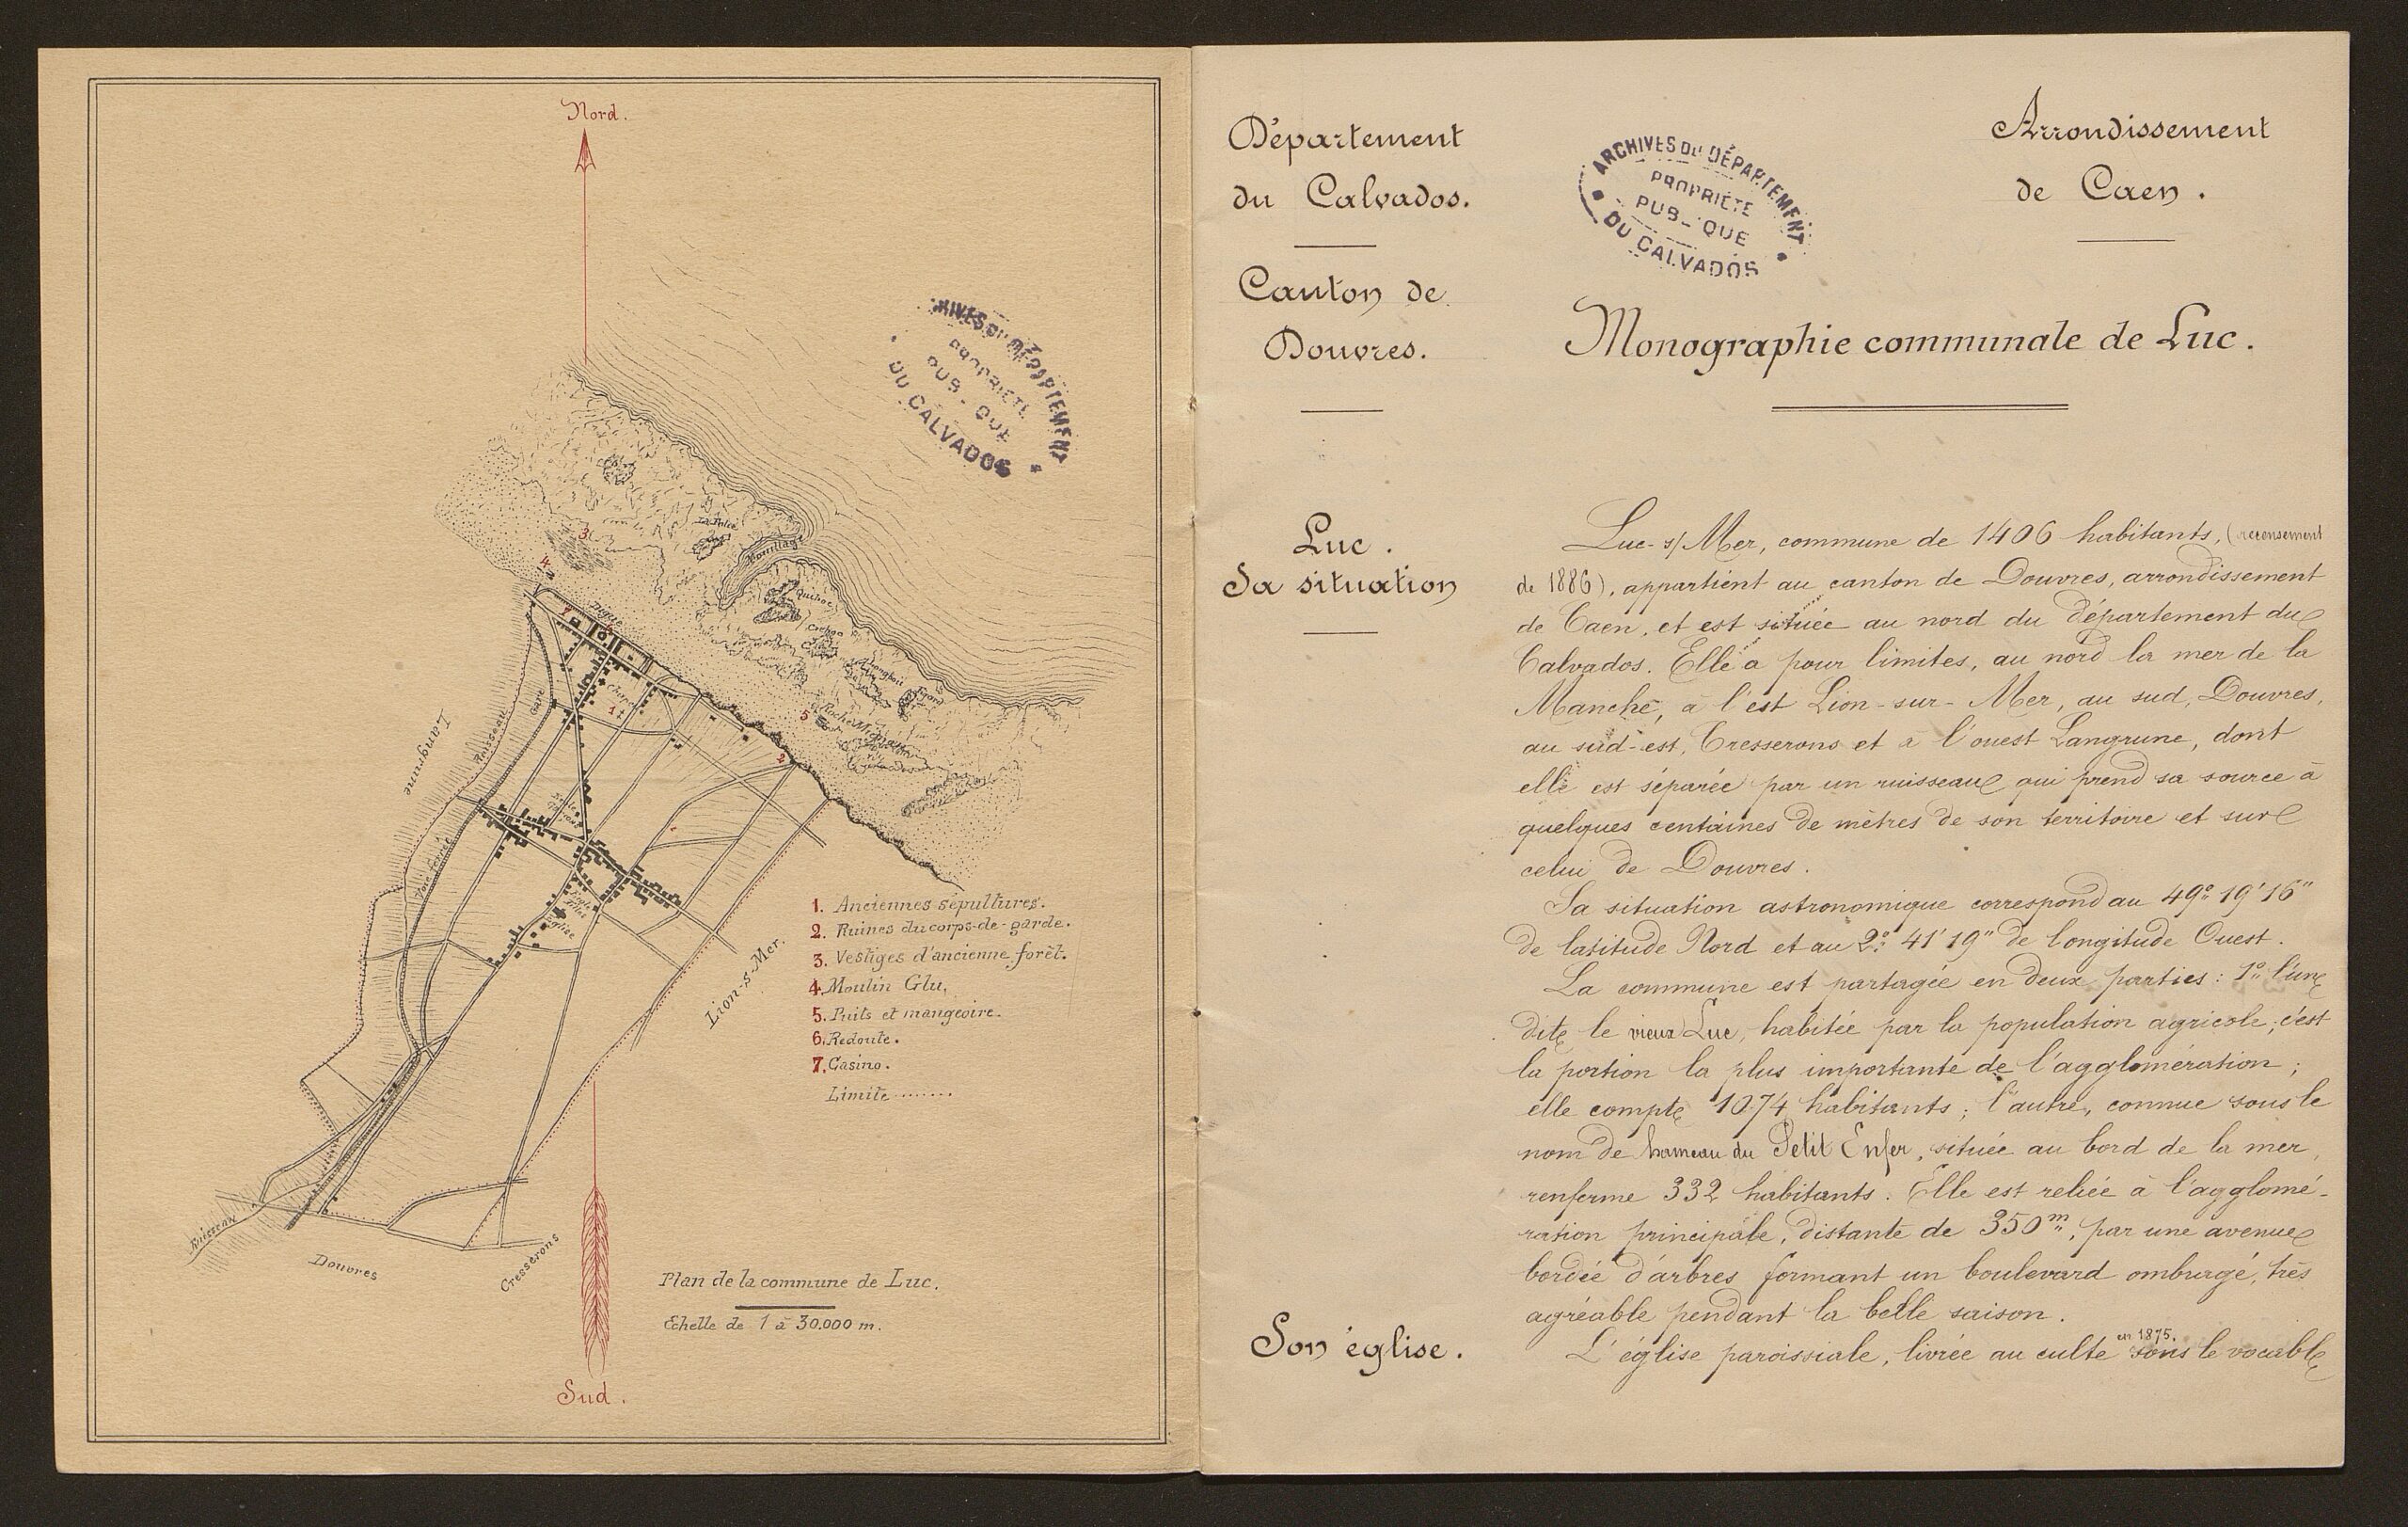 Nord.
ARCHIVES DU DÉPARTEMENT
PROPRIÉTÉ
PUB - QUE
DU CALVADOS
Mouillage
Quihoc
3
4
7
Digue
6
Gare
1
5
2
Langrune
Ruisseau
Voie ferrée
Eglise
Lion-s-Mer.
1. Anciennes sépultures.
2. Ruines du corps-de-garde.
3. Vestiges d'ancienne forêt.
4. Moulin Glu.
5. Puits et mangeoire.
6. Redoute.
7. Casino.
Limite ........
Ruisseau
Douvres
Cresserons
Plan de la commune de Luc.
Echelle de 1 à 30.000 m.
Sud.
Département
du Calvados.
Canton de
Douvres.
ARCHIVES DU DÉPARTEMENT
PROPRIÉTÉ
PUB - QUE
DU CALVADOS
Arrondissement
de Caen.
Monographie communale de Luc.
Luc.
Sa situation
Luc-s/Mer, commune de 1406 habitants, (recensement
de 1886), appartient au canton de Douvres, arrondissement
de Caen, et est située au nord du département du
Calvados. Elle a pour limites, au nord la mer de la
Manche, à l'est Lion-sur-Mer, au sud, Douvres,
au sud-est, Cresserons et à l'ouest Langrune, dont
elle est séparée par un ruisseau qui prend sa source à
quelques centaines de mètres de son territoire et sur
celui de Douvres.
Sa situation astronomique correspond au 49° 19' 16"
de latitude Nord et au 2° 41' 19" de longitude Ouest.
La commune est partagée en deux parties : 1° l'une
dite le vieux Luc, habitée par la population agricole ; c'est
la portion la plus importante de l'agglomération ;
elle compte 1074 habitants ; l'autre, connue sous le
nom de hameau du Petit Enfer, située au bord de la mer,
renferme 332 habitants. Elle est reliée à l'agglomé-
ration principale, distante de 350m, par une avenue
bordée d'arbres formant un boulevard ombragé, très
agréable pendant la belle saison.
Son église.
L'église paroissiale, livrée au culte en 1875. sous le vocable